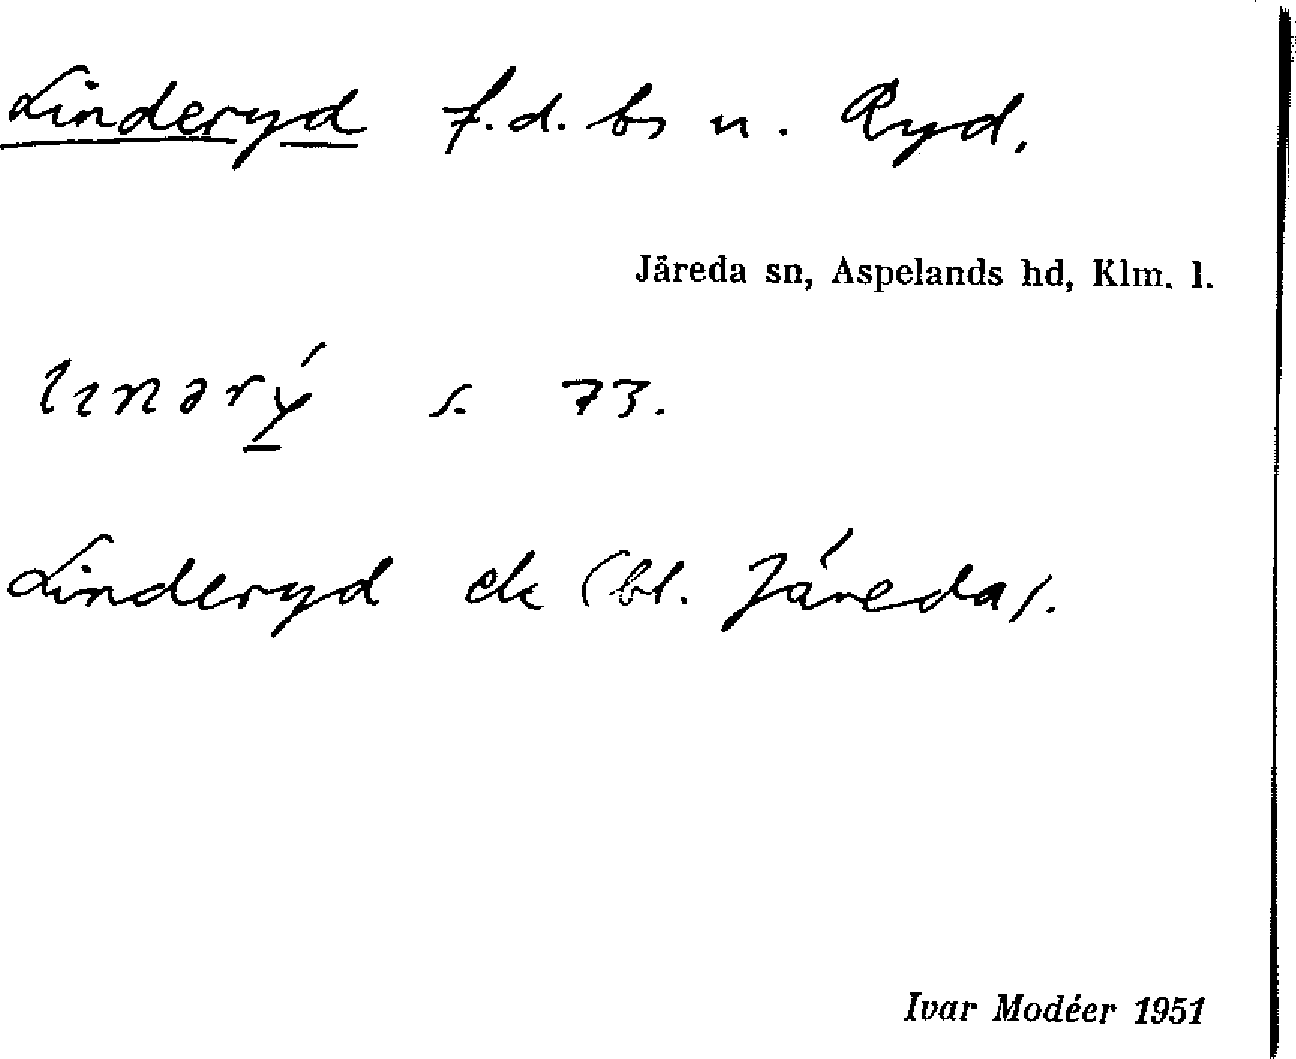 Linderyd f.d. bs u. Ryd.
Järeda sn, Aspelands hd, Klm. l.
lınərý s. 73.
Linderyd ek (bl. Järeda).
Ivar Modéer 1951